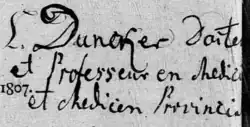 L. Duncker Docte
et Professeur en Medici
1807.
et Medicien Provinci